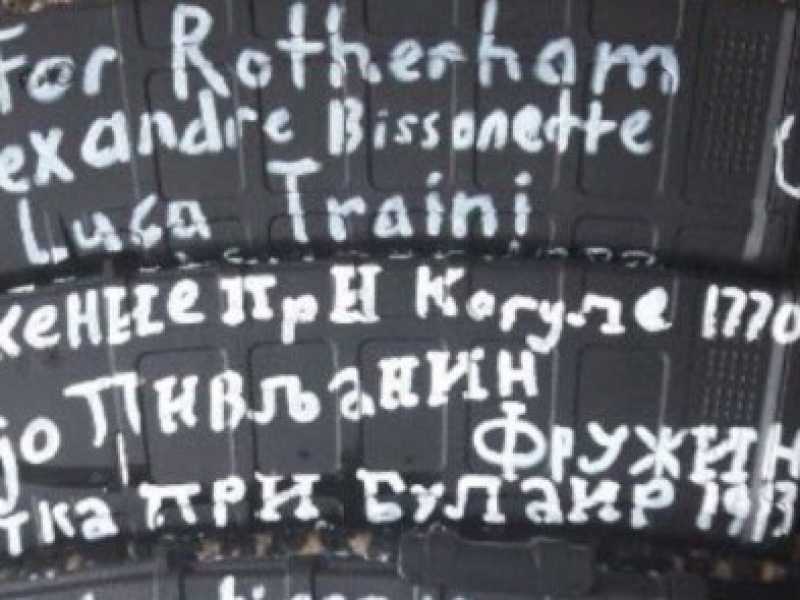 For Rotherham
exandre Bissonette
Luca Traini
жение при Кагуле 1770
јо Пивљанин
Фружин
тка при Булаир 1913